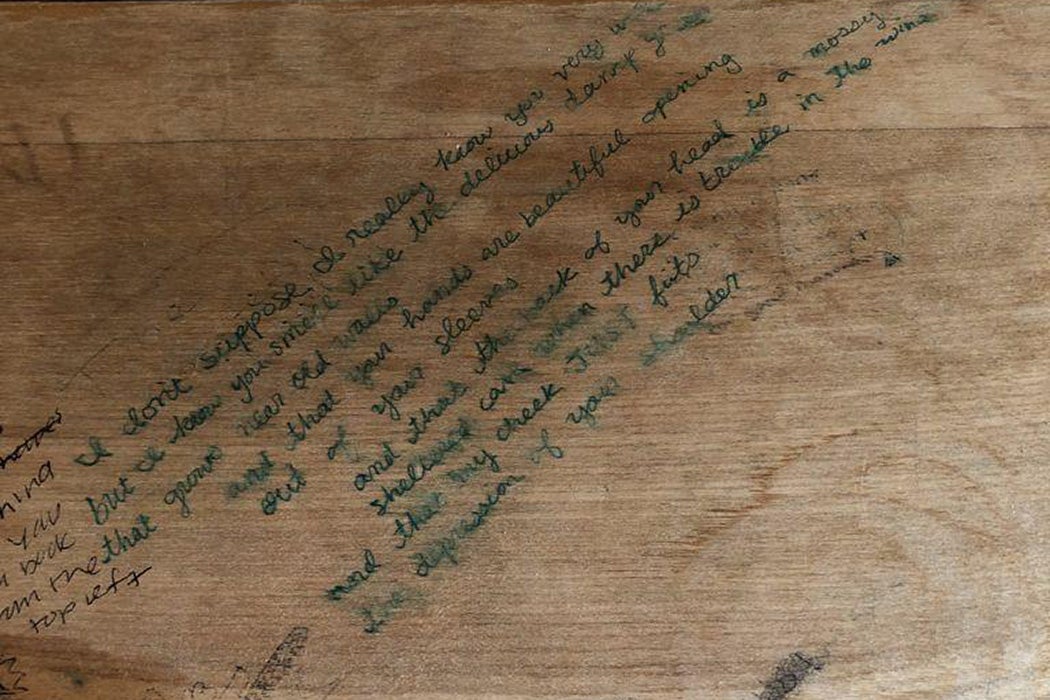 I don't suppose I really know you very
but I know you smell like the delicious damp
that grows near old walls
and that your hands are beautiful opening
out of your sleeves
and that the back of your head is a mossy
sheltered cave when there is trouble in the wind
and that my cheek JUST fits
the depression of your shoulder
you
book
the
top left